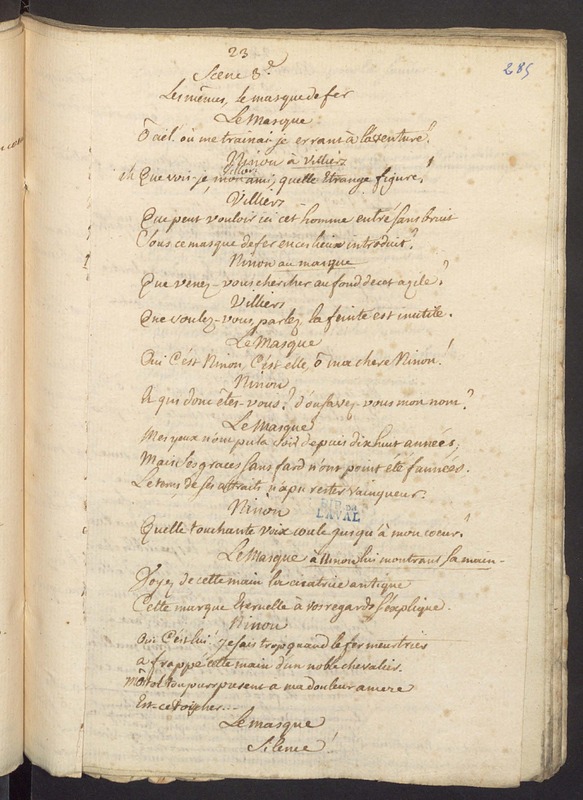 23
285
Scene 8e
Les mêmes, le masque de fer
Le Masque
ô ciel où me trainai je errant à l'aventure!
Ninon à Villiers
Que vois-je mon ami, quelle étrange figure!
Villiers
Que peut vouloir ici cet homme entré sans bruit
Sous ce masque de fer en ces lieux introduit?
Ninon au masque
Que venez-vous chercher au fond de cet azile?
Villiers
Que voulez-vous, parlez, la feinte est inutile.
Le Masque
Oui C'est Ninon, C'est elle, ô ma chere Ninon!
Ninon
Et qui donc êtes-vous? d'où savez-vous mon nom?
Le Masque
Mes yeux n'ont pu la voir depuis dix huit années;
Mais ses graces sans fard n'ont point été fannées.
Le tems de ses attraits n'a pu rester vainqueur.
Ninon
BIB. DE
LAVAL
Quelle touchante voix coule jusqu'à mon coeur!
Le Masque à Ninon lui montrant sa main-
Voyez de cette main la cicatrice antique
Cette marque éternelle à vos regards s'explique.
Ninon
Oui C'est lui! je sais trop quand le fer meurtrier
a frappé cette main d'un noble chevalier.
ô toi toujours present a ma douleur amere
Est-ce toi, cher...
Le masque
Silence!